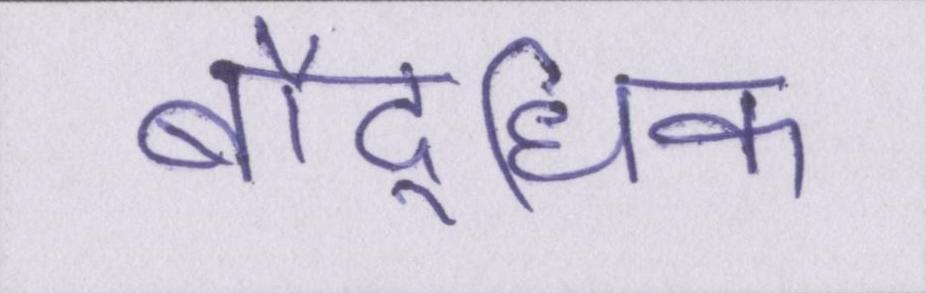 बौद्धिक